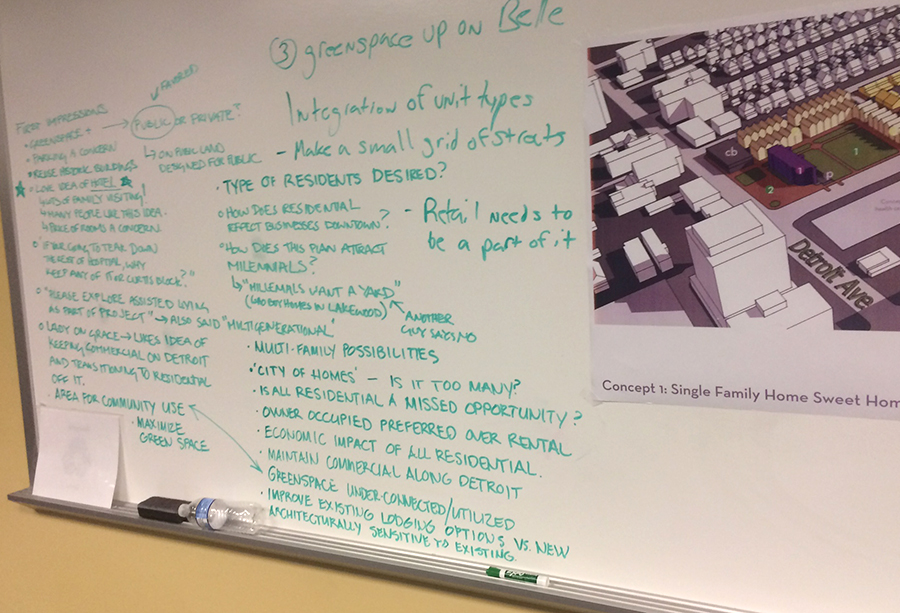 ③ greenspace up on Belle
Integration of unit types
- Make a small grid of streets
- Retail needs to
be a part of it
FIRST IMPRESSIONS
• GREENSPACE + → PUBLIC OR PRIVATE?
✓ FAVORED
↳ ON PUBLIC LAND
DESIGNED FOR PUBLIC
• PARKING A CONCERN
• REUSE HISTORIC BUILDINGS
★ • LOVE IDEA OF HOTEL ★
LOTS OF FAMILY VISITING!
↳ MANY PEOPLE LIKE THIS IDEA.
↳ PRICE OF ROOMS A CONCERN.
• "IF YOUR GOING TO TEAR DOWN
THE REST OF HOSPITAL, WHY
KEEP ANY OF IT OR CURTIS BLOCK?"
• "PLEASE EXPLORE ASSISTED LIVING
AS PART OF PROJECT" → ALSO SAID "MULTIGENERATIONAL"
• LADY ON GRACE → LIKES IDEA OF
KEEPING COMMERCIAL ON DETROIT
AND TRANSITIONING TO RESIDENTIAL
OFF IT.
• AREA FOR COMMUNITY USE
• MAXIMIZE
GREEN SPACE
• TYPE OF RESIDENTS DESIRED?
• HOW DOES RESIDENTIAL
EFFECT BUSINESSES DOWNTOWN?
• HOW DOES THIS PLAN ATTRACT
MILENNIALS?
↳ "MILLEMALS WANT A YARD"
HOMES IN LAKEWOOD)
ANOTHER
GUY SAYS NO
• MULTI-FAMILY POSSIBILITIES
• 'CITY OF HOMES' - IS IT TOO MANY?
• IS ALL RESIDENTIAL A MISSED OPPORTUNITY?
• OWNER OCCUPIED PREFERRED OVER RENTAL
• ECONOMIC IMPACT OF ALL RESIDENTIAL.
• MAINTAIN COMMERCIAL ALONG DETROIT
• GREENSPACE UNDER-CONNECTED/UTILIZED
• IMPROVE EXISTING LODGING OPTIONS VS. NEW
• ARCHITECTURALLY SENSITIVE TO EXISTING.
cb
1
1
2
P
Detroit Ave
Concept 1: Single Family Home Sweet Hom
EXPO